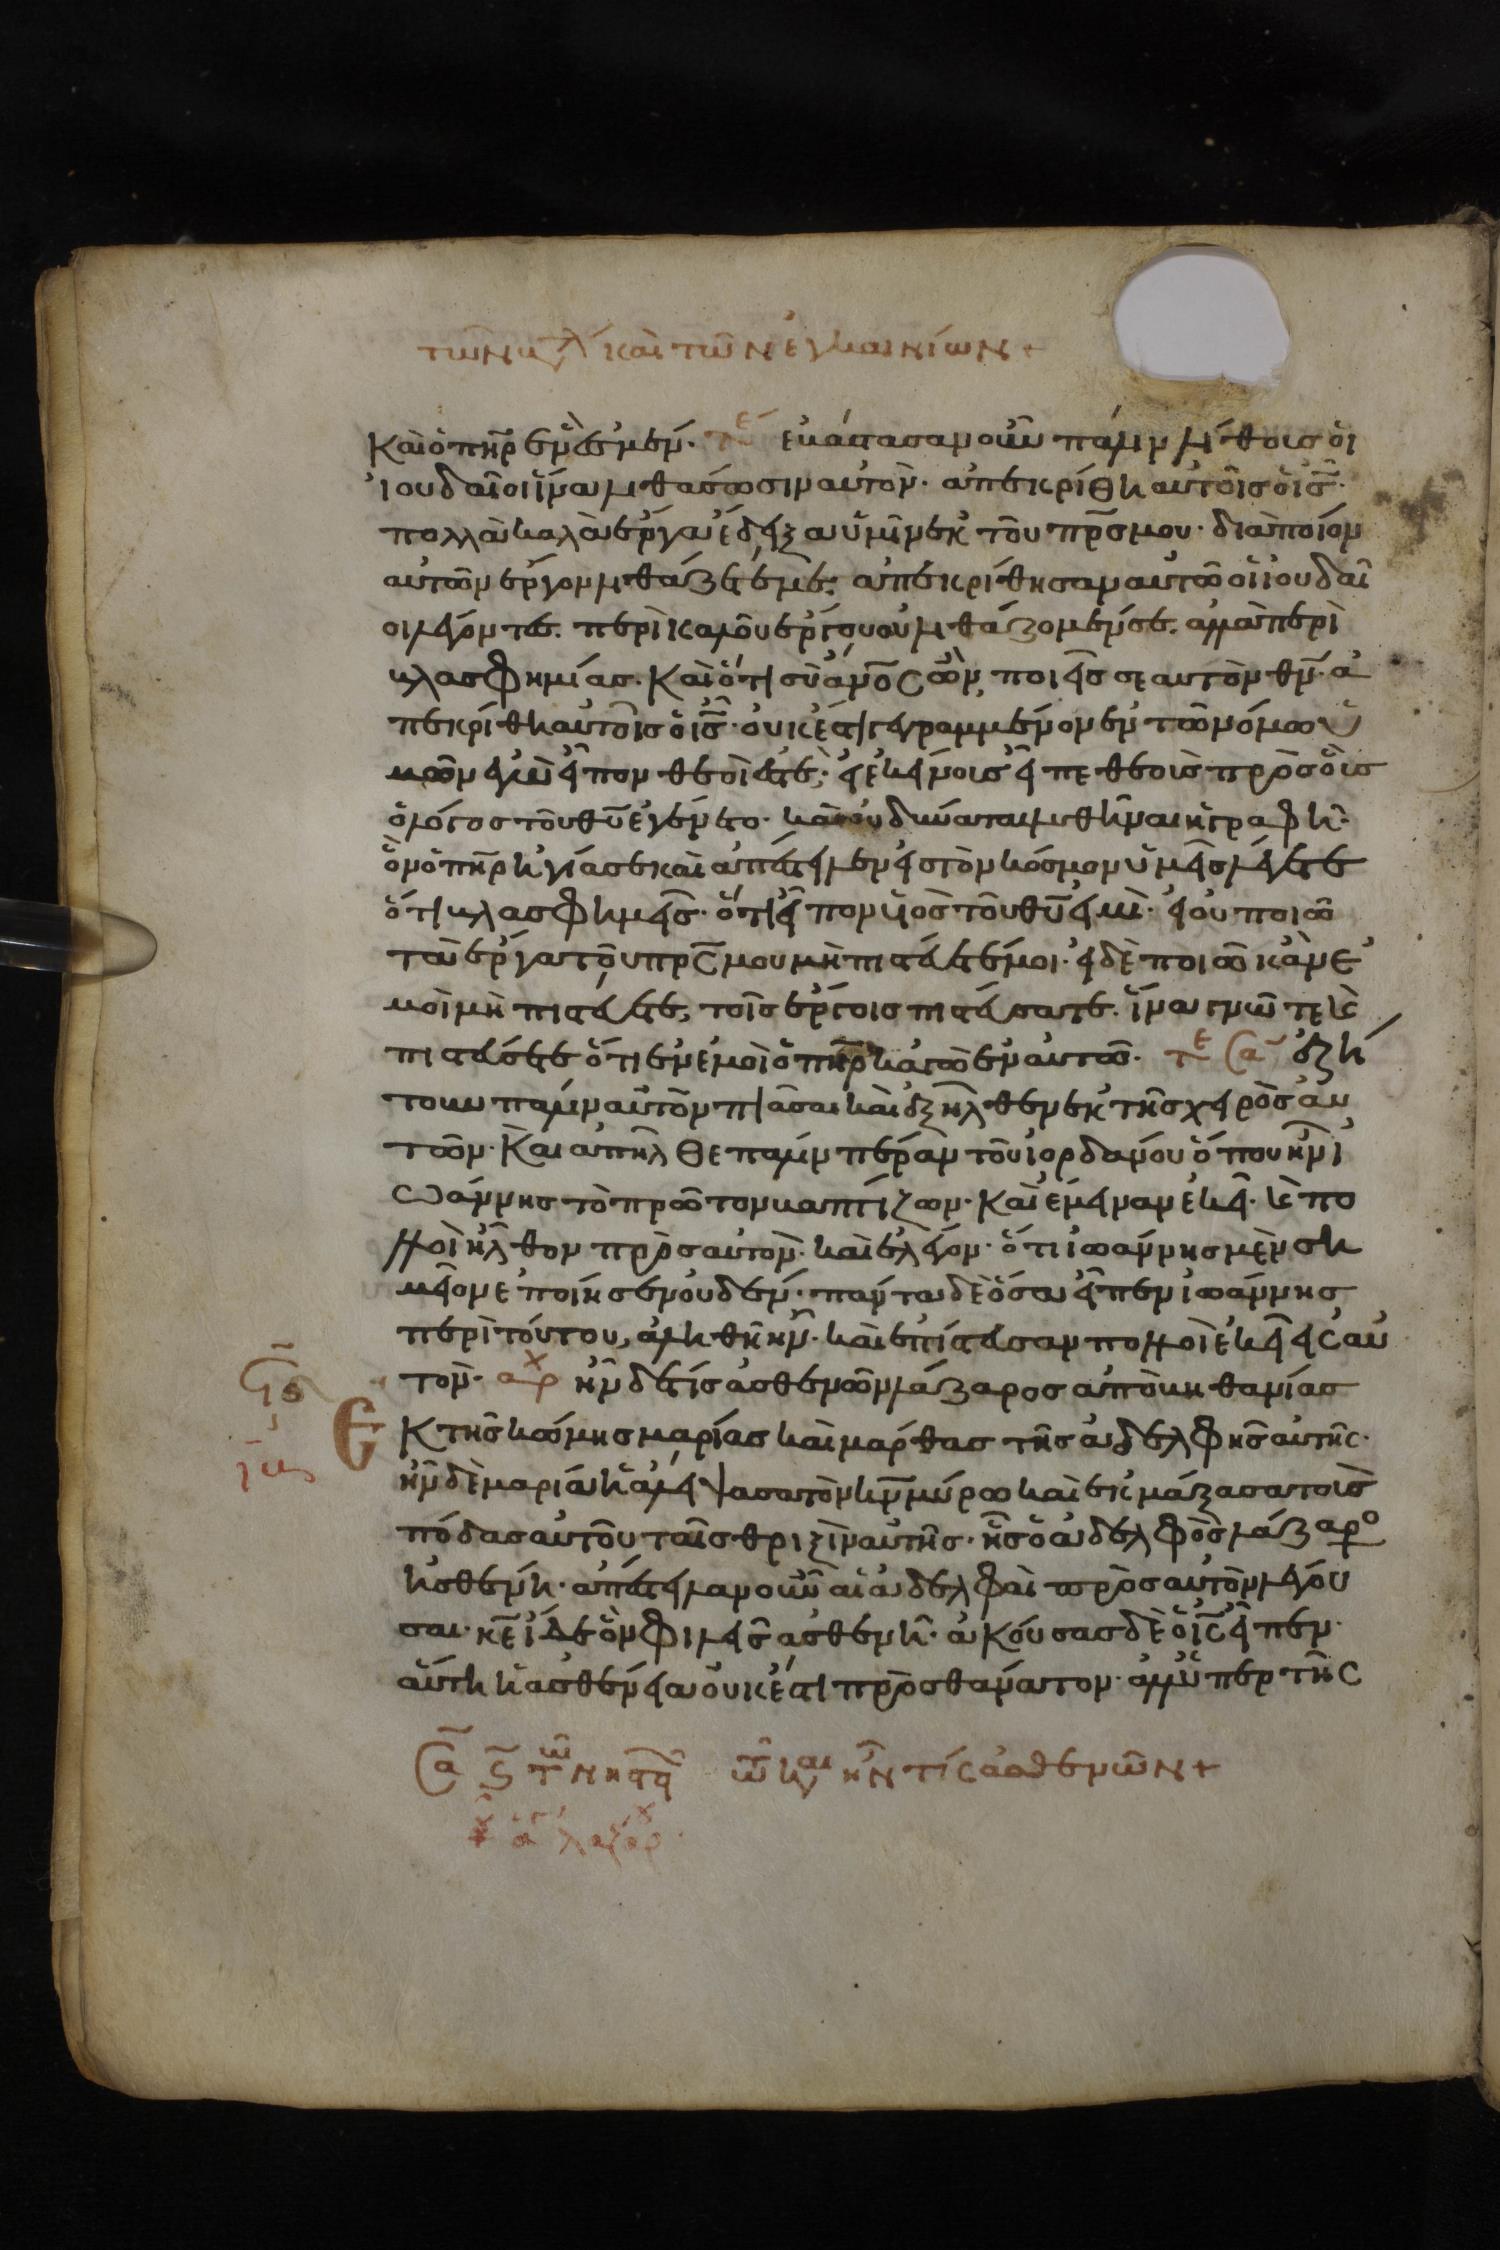 και των εγκαινίων +
και ὁ πηρ ἐν ἐμέν. τέ ἐβάστασαν οὖν πάλιν λίθους οἱ
ἰουδαῖοι ἵνα λιθάσωσιν αὐτόν. ἀπεκρίθη αὐτοῖς ὁ ις.
πολλὰ καλὰ ἔργα ἔδειξα ὑμῖν ἐκ τοῦ πρς μου. διὰ ποῖον
αὐτῶν ἔργον λιθάζετέ με; ἀπεκρίθησαν αὐτῶ οἱ ἰουδαῖ
οι λέγοντες. περὶ καλοῦ ἔργου οὐ λιθάζομέν σε. ἀλλὰ περὶ
βλασφημίας. Καὶ ὅτι σὺ ἄνος ὢν, ποιεῖς σεαυτὸν θν. ἀ
πεκρίθη αὐτοῖς ὁ ις. οὐκ ἔστι γεγραμμένον ἐν τῶ νόμω ὑ
μῶν ἐγὼ εἶπον θεοί ἐστέ; εἰ ἐκείνους εἶπε θεοὺς πρὸς οὓς
ὁ λόγος τοῦ θυ ἐγένετο. καὶ οὐ δύναται λυθῆναι ἡ γραφή.
ὃν ὁ πηρ ἡγίασε καὶ ἀπέστειλεν εἰς τὸν κόσμον ὑμεῖς λέγετε
ὅτι βλασφημεῖς. ὅτι εἶπον υἱὸς τοῦ θυ εἰμί. εἰ οὐ ποιῶ
τὰ ἔργα τοῦ πρς μου μὴ πιστεύετέ μοι. εἰ δὲ ποιῶ κἂν ἐ
μοὶ μὴ πιστεύετε, τοῖς ἔργοις πιστεύσατε. ἵνα γνῶτε καὶ
πιστεύσητε ὅτι ἐν ἐμοὶ ὁ πηρ κἀγὼ ἐν αὐτῶ. τε Σα ἐζή
τουν πάλιν αὐτὸν πιᾶσαι καὶ ἐξῆλθεν ἐκ τῆς χειρὸς αὐ
τῶν. Και ἀπῆλθε πάλιν πέραν τοῦ ἰορδάνου ὅπου ἦν ἰ
ωάννης τὸ πρῶτον βαπτίζων. Καὶ ἔμεινεν ἐκεῖ. καὶ πο
λλοὶ ἦλθον πρὸς αὐτόν. καὶ ἔλεγον. ὅτι ἰωάννης μὲν ση
μεῖον ἐποίησεν οὐδέν. πάντα δὲ ὅσα εἶπεν ἰωάννης
περὶ τούτου, ἀληθῆ ἦν. καὶ ἐπίστευσαν πολλοὶ ἐκεῖ εἰς αὐ
τόν. αρχ ἦν δέ τις ἀσθενῶν λάζαρος ἀπὸ βηθανίας
Ἐκ τῆς κώμης μαρίας καὶ μάρθας τῆς ἀδελφῆς αὐτῆς.
ἦν δὲ μαρία ἡ ἀλείψασα τὸν κν μύρω καὶ ἐκμάξασα τοὺς
πόδας αὐτοῦ ταῖς θριξὶν αὐτῆς. ἧς ὁ ἀδελφὸς λάζαρο
ἠσθένη. ἀπέστειλαν οὖν αἱ ἀδελφαὶ πρὸς αὐτὸν λέγου
σαι. κε ἴδε ὃν φιλεῖς ἀσθενεῖ. ἀκούσας δὲ ὁ ις εἶπεν.
αὕτη ἡ ἀσθένεια οὐκ ἔστι πρὸς θάνατον. ἀλλ' ὑπὲρ τῆς
Σα ϛ τῶν νηστει τω και ἦν τίς ἀσθενῶν +
λαζαρ